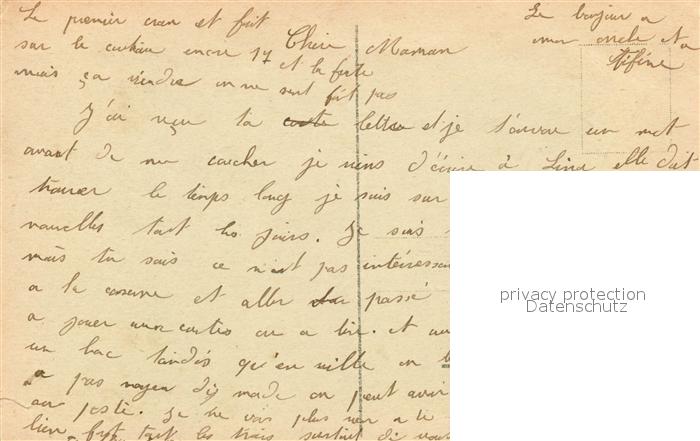 Le premier cran et fait
sur le couteau encore 17
mais ça viendra on ne s'en
et la perte
fait pas
Le bonjour a
mon oncle et a
Fifine
Chère Maman
J'ai reçu ta lettre et je t'envoie un mot
avant de me coucher je viens d'écrire à Lina elle doit
trouver le temps long je suis sur
nouvelles tout les jours. Je suis
mais tu sais ce n'est pas intéressan
a la caserne et aller passé
a jouer aux cartes ou a lire. et au
un bac tandis qu'en ville on
a pas moyen on peut avoir
au poste. Je ne vois plus rien a te
bien fort tout les trois surtout
privacy protection
Datenschutz